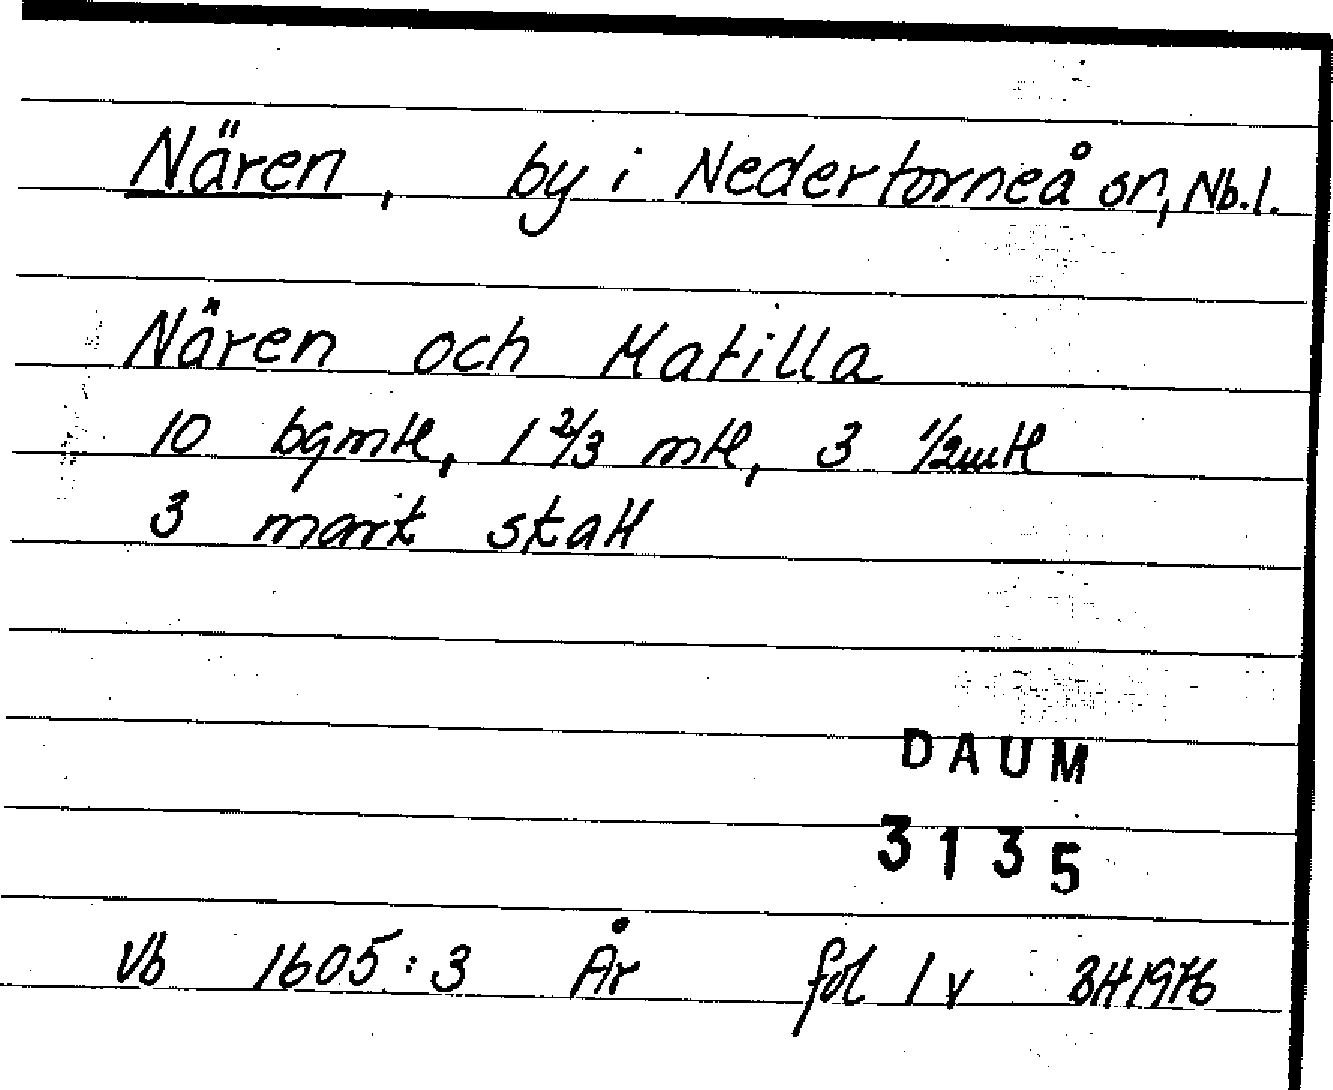 Nären, by i Nedertorneå sn, Nb.l.
Nären och Matilla
10 bgmtl, 1 2/3 mtl, 3 1/2 mtl
3 mark skatt
DAUM
3135
Vb 1605:3 År fol 1 v BH 1976